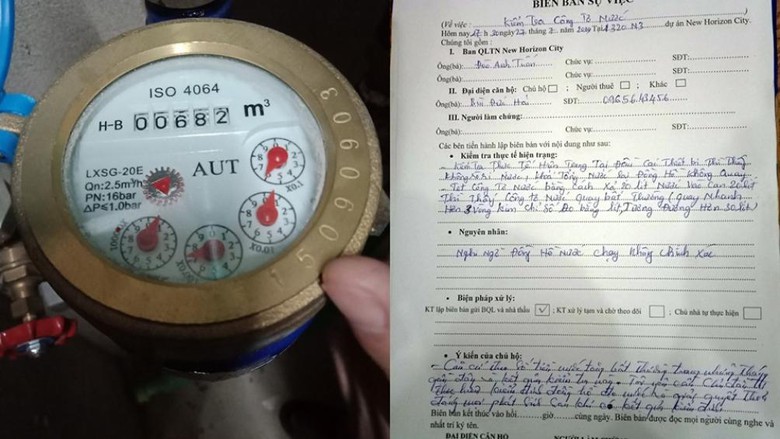 ISO 4064
H-B 00682 m³
LXSG-20E
AUT
Qn:2.5m³/h
PN:16bar
ΔP≤1.0bar
X0.1
X0.01
15060903
BIÊN BẢN SỰ VIỆC
(Về việc: Kiểm Tra Công Tơ Nước)
Hôm nay 17 h 30 ngày 27 tháng 2 năm Tại dự án New Horizon City.
Chúng tôi gồm:
I. Ban QLTN New Horizon City
Ông(bà): Đào Anh Tuấn Chức vụ: SĐT:
Ông(bà): Chức vụ: SĐT:
II. Đại diện căn hộ: Chủ hộ ; Người thuê ; Khác
Ông(bà): Bùi Đức SĐT:
III. Người làm chứng:
Ông(bà): Chức vụ: SĐT:
Các bên tiến hành lập biên bản với nội dung như sau:
• Kiểm tra thực tế hiện trạng:
- Kiểm Tra Thực Tế Hiện Trạng Tại Đầu Các Thiết Bị Thì Thấy
Không Rò Rỉ Nước, Khóa Tổng Nước Lại Đồng Hồ Không Quay
- Test Công Tơ Nước Bằng Cách Xả 20 lít Nước Vào Can 20 lít
Thì Thấy Công Tơ Nước Quay Bất Thường (Quay Nhanh
Hơn 3 Vòng Kim Chỉ Số Đo Bằng lít, Tương Đương Hơn 30 lít)
• Nguyên nhân:
Nghi Ngờ Đồng Hồ Nước Chạy Không Chính Xác
• Biện pháp xử lý:
KT lập biên bản gửi BQL và nhà thầu ✓ ; KT xử lý tạm và chờ theo dõi ; Chủ nhà tự thực hiện
• Ý kiến của chủ hộ:
- Căn cứ theo số tiền nước tăng bất thường trong những tháng
gần đây và kết quả kiểm tra Tôi yêu cầu Chủ đầu tư
kiểm định đồng hồ đo nước và giải quyết
phát sinh sau khi có kết quả kiểm định
Biên bản kết thúc vào hồi giờ cùng ngày. Biên bản được đọc mọi người cùng nghe và
nhất trí ký tên.
ĐẠI DIỆN CĂN HỘ